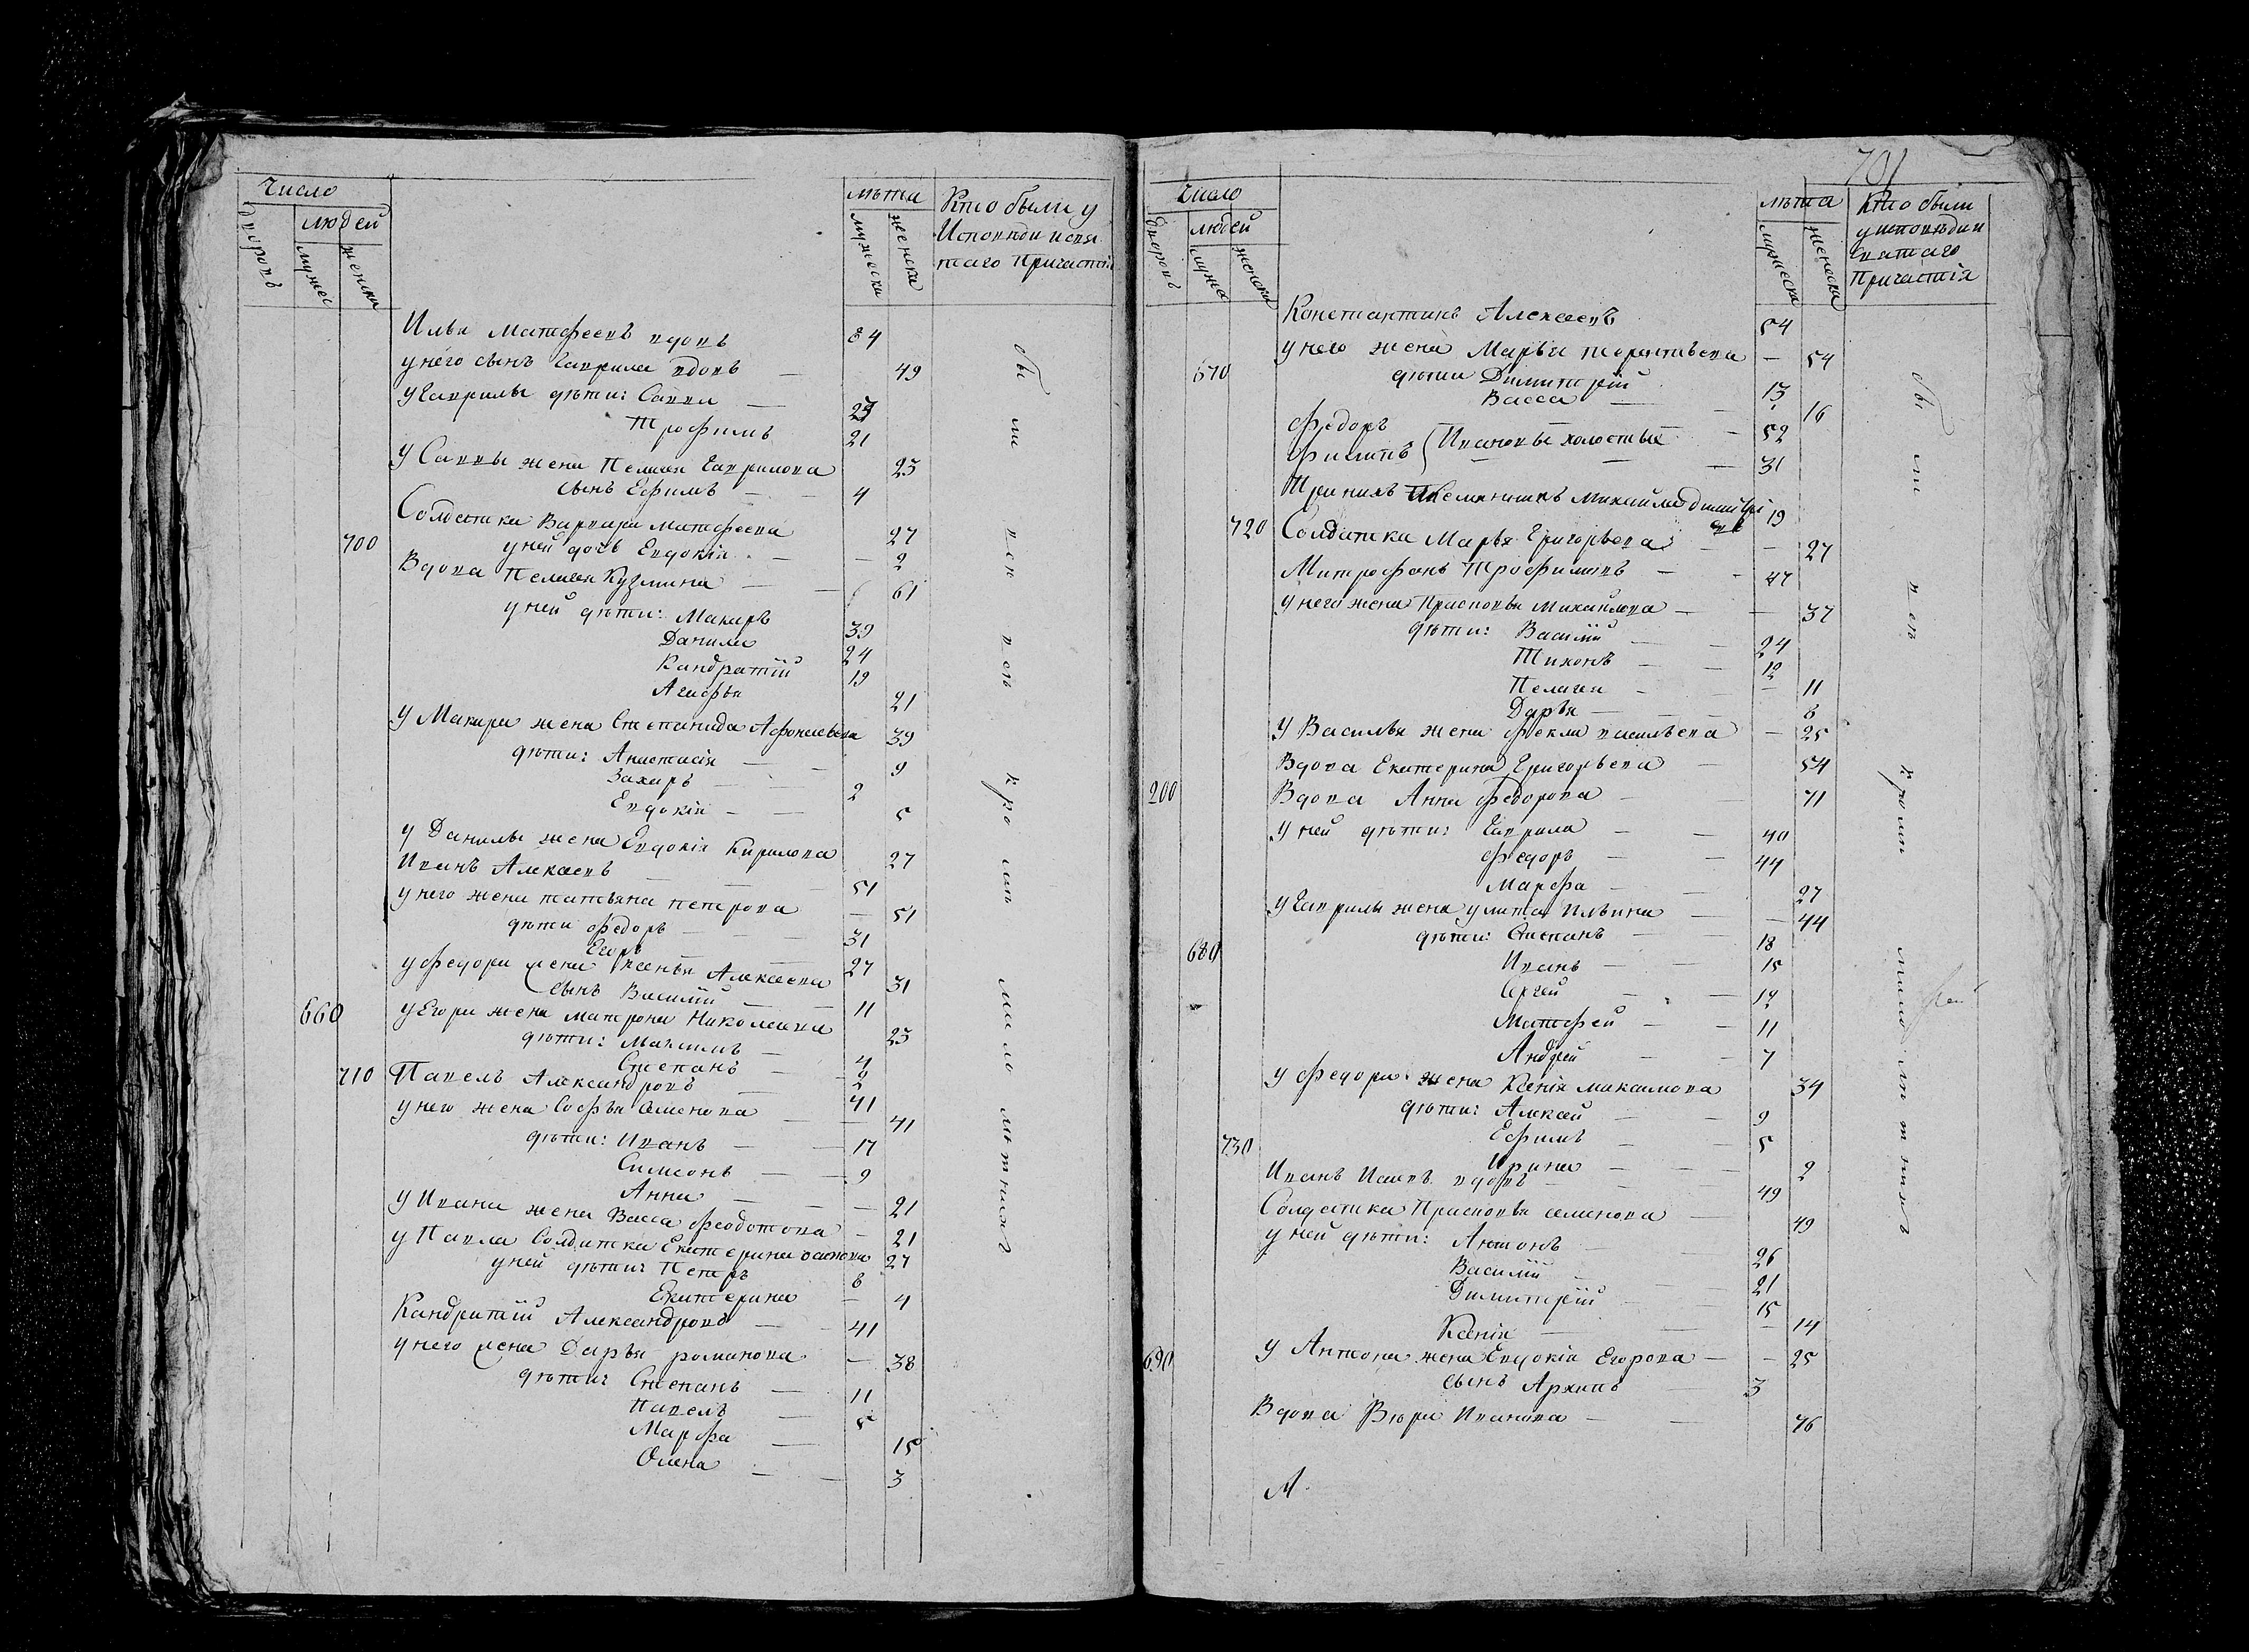 Число
людей
дворовъ
мужес
женска
лѣта
мужеска
женска
Кто были у
Исповѣди и свя
таго Причастія
Илья Матфеевъ вдовъ 84
у него сынъ Гаврила вдовъ — 49
у Гаврилы дѣти: Савва —
Трофимъ 21
у Саввы жена Пелагея Гаврилова 23
сынъ Ефимъ — — 4
Солдатка Варвара Матфеева 27
700 у ней дочь Евдокія — — 2
Вдова Пелагея Кузмина — — 61
у ней дѣти: Макаръ 39
Данила 24
Кандратій 19
Агафья 21
у Макара жена Степанида Афонасьева 39
дѣти: Анастасія — — 9
Захаръ — — 2
Евдокія — — 5
у Данилы жена Евдокія Кирилова 27
Иванъ Алексеевъ — — 51
у него жена татьяна петрова — 51
дѣти Федоръ — — 31
Егоръ — 27
у федора жена ксенья Алексеева 31
сынъ Василій — — 11
660 у Егора жена Матрона Николаева 23
дѣти: Максимъ — 4
Степанъ — 2
710 Павелъ Александровъ — 41
у него жена Софья Семенова — — 41
дѣти: Иванъ — — 17
Симеонъ — — 9
Анна — — 21
у Ивана жена Васса Феодотова — 21
у Павла Солдатка Екатерина осипова 27
у ней дѣти: Петръ 8
Екатерина — 4
Кандратій Александровъ — — 41
у него жена Дарья романова — 38
дѣти: Степанъ — 11
Павелъ — 5
Марфа — 15
Олена — — 3
были всѣ
кромѣ
малолѣтнихъ
701
Число
людей
дворовъ
мужес
женска
лѣта
мужеска
женска
Кто были
у исповѣди и
святаго
Причастія
Константинъ Алексеевъ 54
у него жена Марья терентьева — 54
670 дѣти Димитрій 13
Васса — — 16
Федоръ — — 52
Филипъ Ивановы холостые — 31
19
720 Солдатка Марья Григорьева — — 27
Митрофанъ Трофимовъ — — 47
у него жена Прасковья Михайлова — — 37
дѣти: Василій — — 24
Тихонъ — — 12
Пелагея — — 11
Дарья — — 8
у Василья жена фекла васильева — 25
Вдова Екатерина Григорьева — 54
200 Вдова Анна федорова — 71
у ней дѣти: Гаврила — — 40
федоръ — — 44
Марфа — — 27
у Гаврилы жена улита Ильина — — 44
680 дѣти: Степанъ — — 18
Иванъ — — 15
Сергей — — 12
Матфей — — 11
Андрей — — 7
у федора жена Ксенія максимова 34
дѣти: Алексей — — 9
730 Ефимъ — — 5
Ирина — — 2
Иванъ Исаевъ вдовъ — — 49
Солдатка Прасковья семенова — 49
у ней дѣти: Антонъ — — 26
Василій — — 21
Димитрій — — 15
Ксенія — — 14
690 у Антона жена Евдокія Егорова — — 25
сынъ Архипъ — 3
Вдова Иванова — — 76
были всѣ
кромѣ
малолѣтнихъ